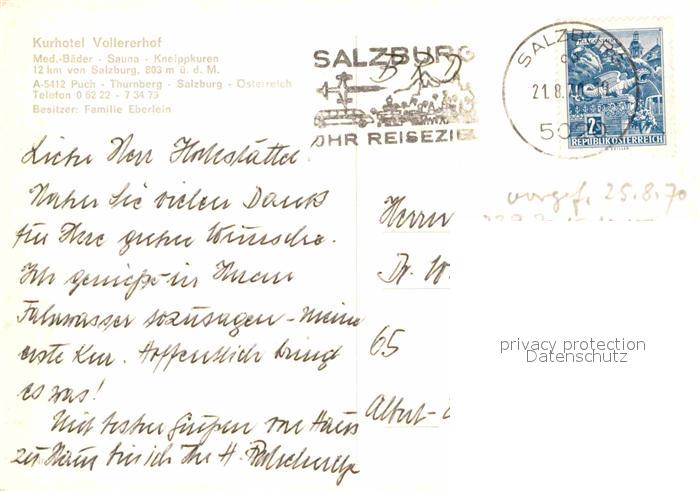 Kurhotel Vollererhof
Med.-Bäder - Sauna - Kneippkuren
12 km von Salzburg, 803 m ü. d. M.
A-5412 Puch - Thurnberg - Salzburg - Österreich
Telefon 0 62 22 - 7 34 73
Besitzer: Familie Eberlein
SALZBURG
IHR REISEZIEL
SALZBURG
21.8.
REPUBLIK ÖSTERREICH
BRD
25.8.70
Liebe Herr
Haben Sie vielen Dank
für Ihre guten Wünsche.
Ich genieße in Ihrem
Fahrwasser sozusagen - meine
erste Kur. Hoffentlich bringt
es was!
Mit besten Grüßen von Haus
zu Haus bin ich Ihr H.
Herrn
Dr. W.
65
Albert-
privacy protection
Datenschutz